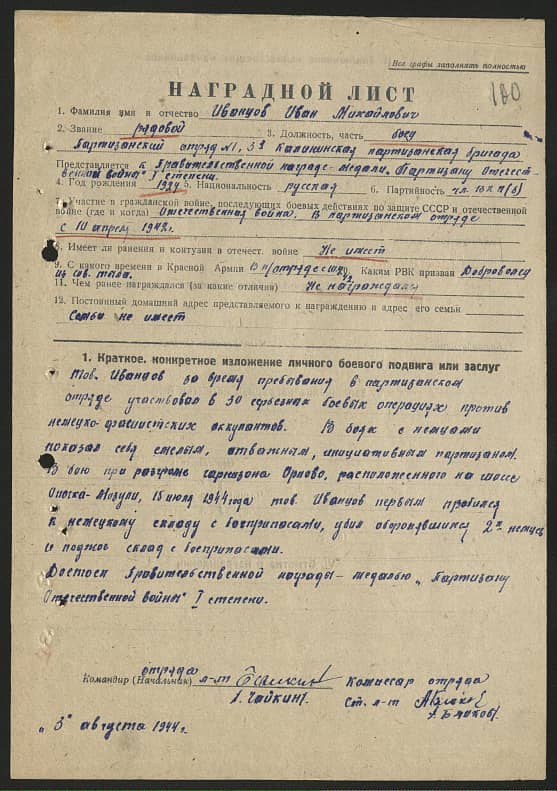 Все графы заполнять полностью
180
НАГРАДНОЙ ЛИСТ
1. Фамилия имя и отчество Иванцов Иван Михайлович
2. Звание рядовой 3. Должность, часть боец
Партизанский отряд №1, 5й Калининская партизанская бригада
Представляется к Правительственной награде - медали "Партизану Отечест-
венной война" I степени.
4. Год рождения 1924 5. Национальность русская 6. Партийность чл. ВКП(б)
7. Участие в гражданской войне, последующих боевых действиях по защите СССР и отечественной
войне (где и когда) Отечественная война. В партизанском отряде
с 10 апреля 1942г.
8. Имеет ли ранения и контузии в отечест. войне Не имеет
9. С какого времени в Красной Армии В п/отряде с 10. Каким РВК призван Добровольно
из сов. тыла.
11. Чем ранее награждался (за какие отличия) Не награждался
12. Постоянный домашний адрес представляемого к награждению и адрес его семьи
Семьи не имеет
1. Краткое, конкретное изложение личного боевого подвига или заслуг
Тов. Иванцов за время пребывания в партизанском
отряде участвовал в 30 серьезных боевых операциях против
немецко-фашистских оккупантов. В боях с немцами
показал себя смелым, отважным, инициативным партизаном.
В бою при разгроме гарнизона Орлово, расположенного на шоссе
Опочка-Мозули, 15 июля 1944 года тов. Иванцов первым пробился
к немецкому складу с боеприпасами, убил оборонявшихся 2х немцев
и поджог склад с боеприпасами.
Достоен Правительственной награды - медалью "Партизану
Отечественной войны" I степени.
отряда
Командир (Начальник) л-т
/. Чайкин/.
Комиссар отряда
Ст. л-т
"3" августа 1944 г.